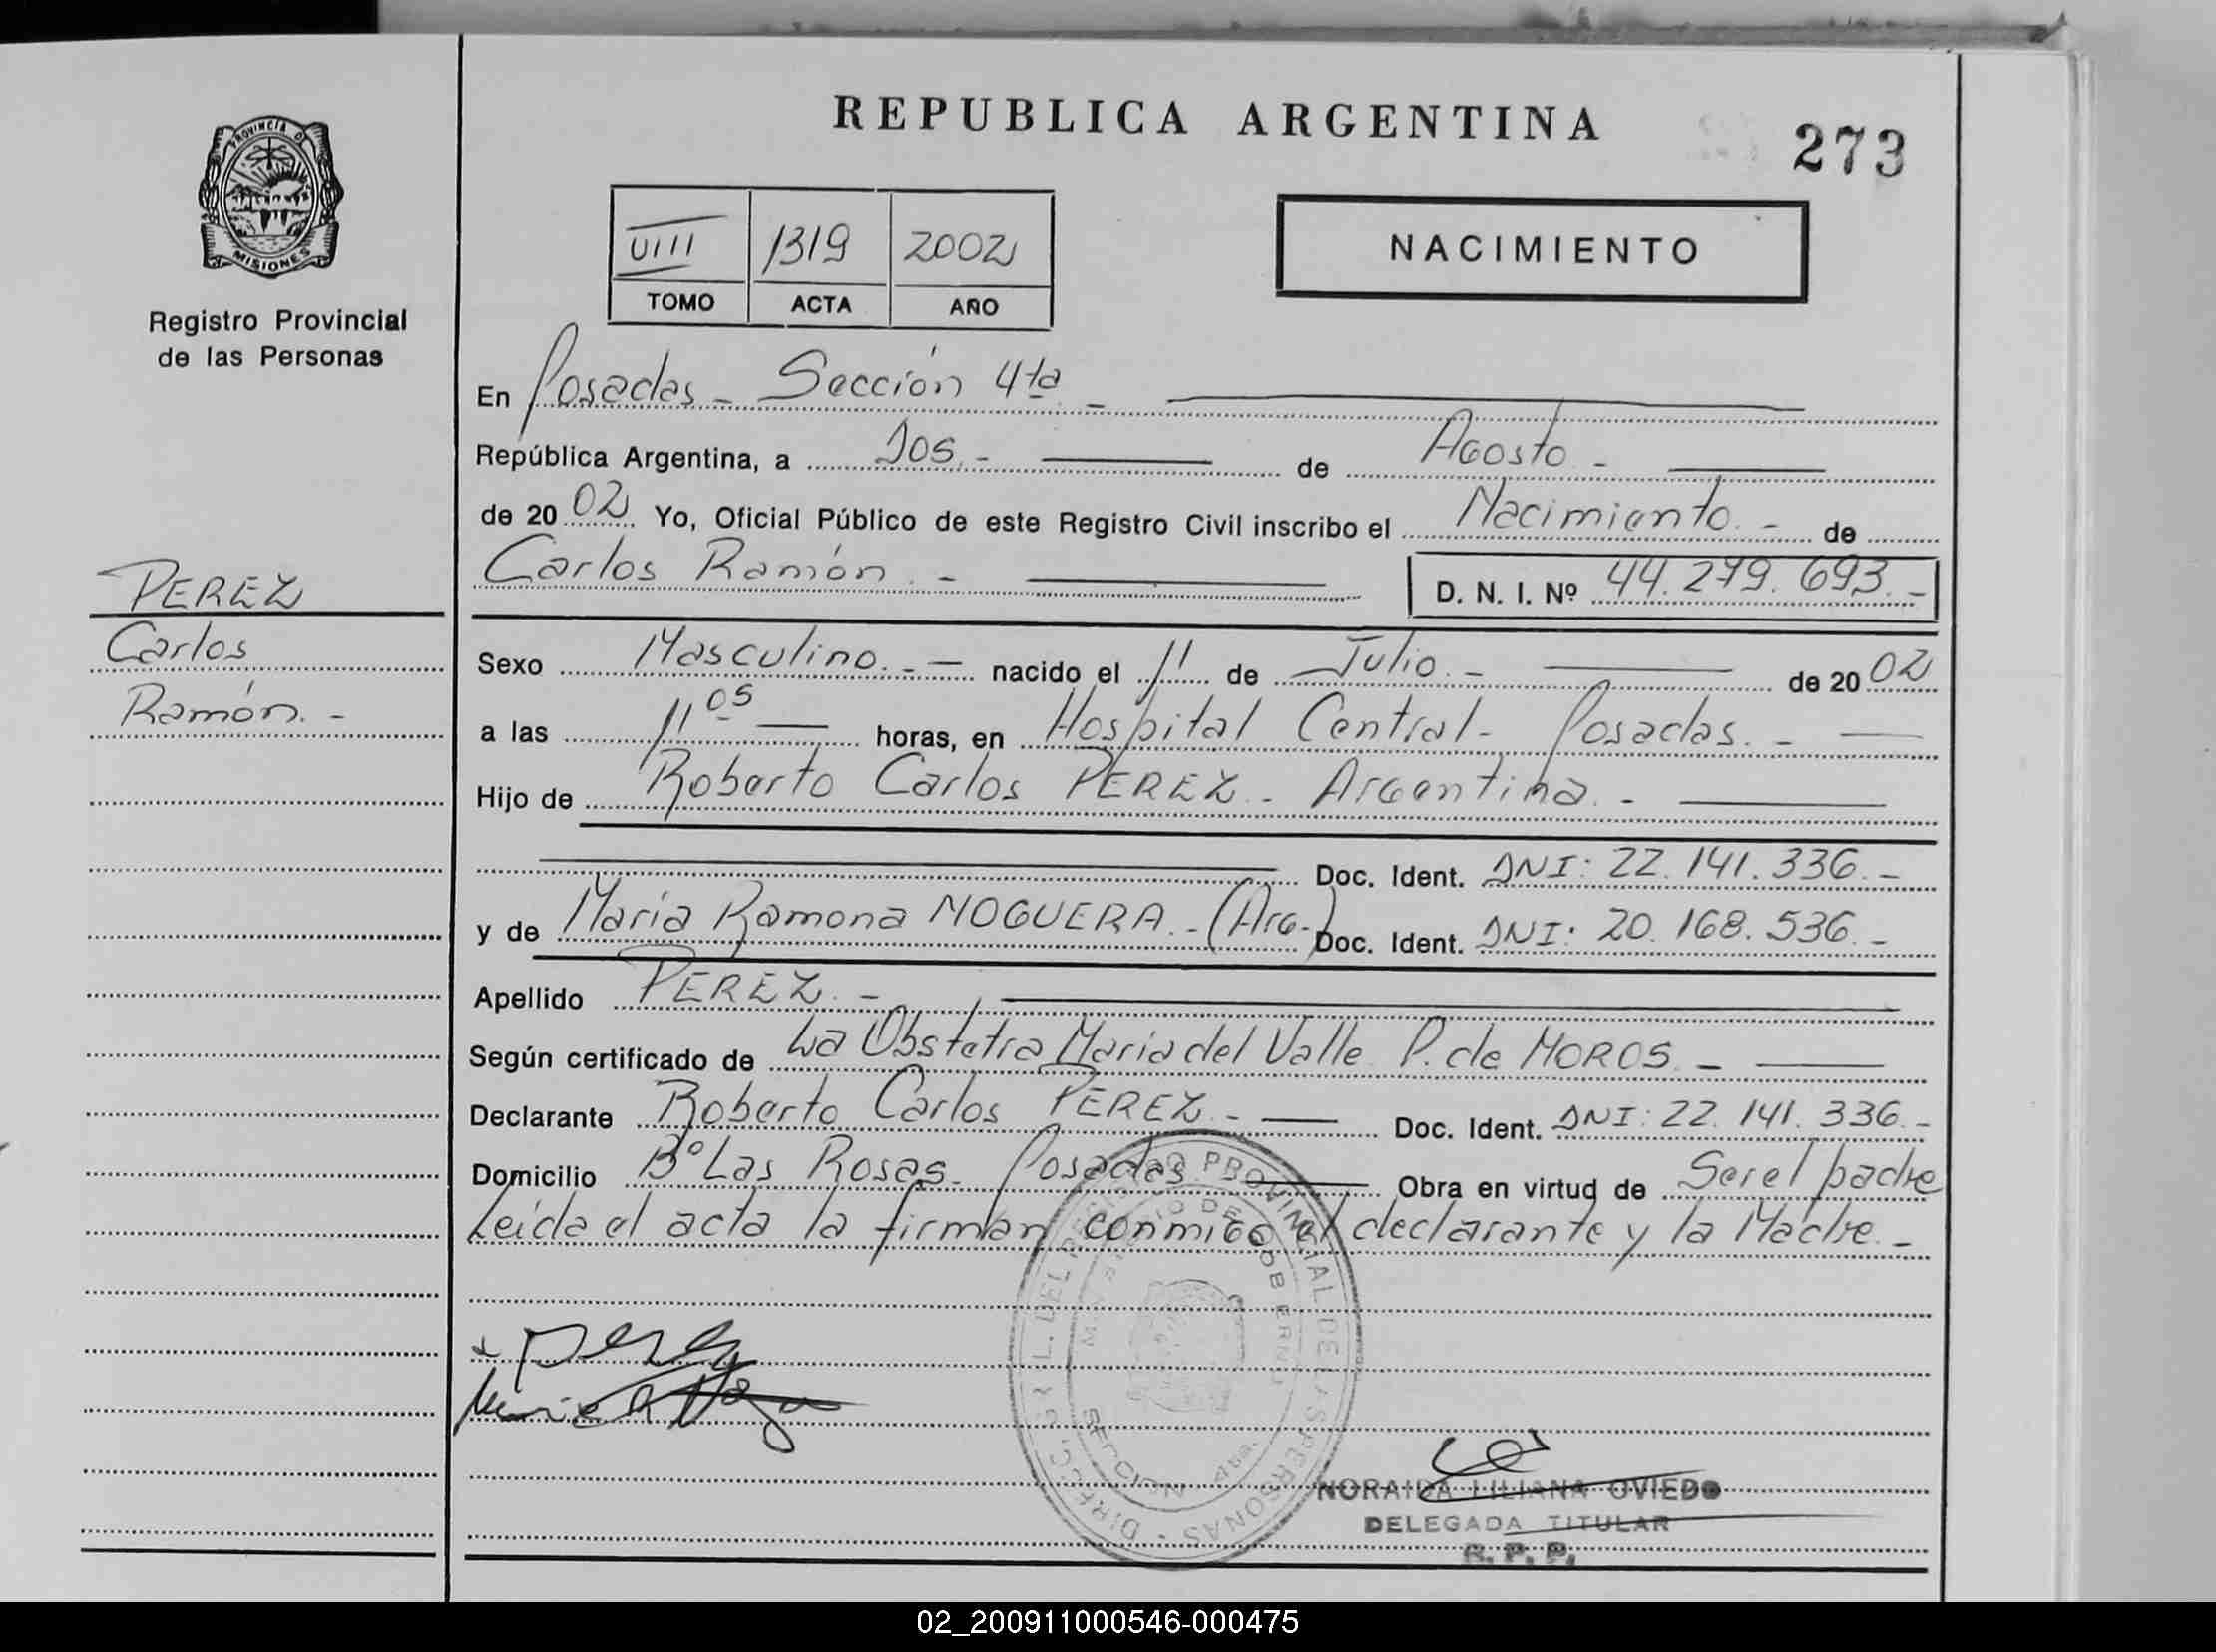 REPUBLICA ARGENTINA
273
PROVINCIA DE MISIONES
Registro Provincial
de las Personas
VIII 1319 2002
TOMO ACTA AÑO
NACIMIENTO
En Posadas - Sección 4ta. -
República Argentina, a Dos. - de Agosto -
de 20 02 Yo, Oficial Público de este Registro Civil inscribo el Nacimiento. - de
Carlos Ramón. - D. N. I. Nº 44.279.693. -
PEREZ
Carlos
Ramón. -
Sexo Masculino. - nacido el 11 de Julio. - de 20 02
a las 11 05 horas, en Hospital Central - Posadas. -
Hijo de Roberto Carlos PEREZ - Argentina. -
y Doc. Ident. DNI: 22.141.336. -
y de María Ramona NOGUERA. - (Arg.) Doc. Ident. DNI: 20.168.536. -
Apellido PEREZ. -
Según certificado de La Obstetra Maria del Valle P. de MOROS. -
Declarante Roberto Carlos PEREZ. - Doc. Ident. DNI: 22.141.336. -
Domicilio Bº Las Rosas - Posadas Obra en virtud de Ser el padre
Leída el acta la firman conmigo el declarante y la Madre. -
Perez
DIRECC. GRL. DEL REGISTRO PROVINCIAL DE LAS PERSONAS
MINISTERIO DE GOBIERNO
SECCION 4ta.
NORAIDA LILIANA OVIEDO
DELEGADA TITULAR
R. P. P.
02_200911000546-000475